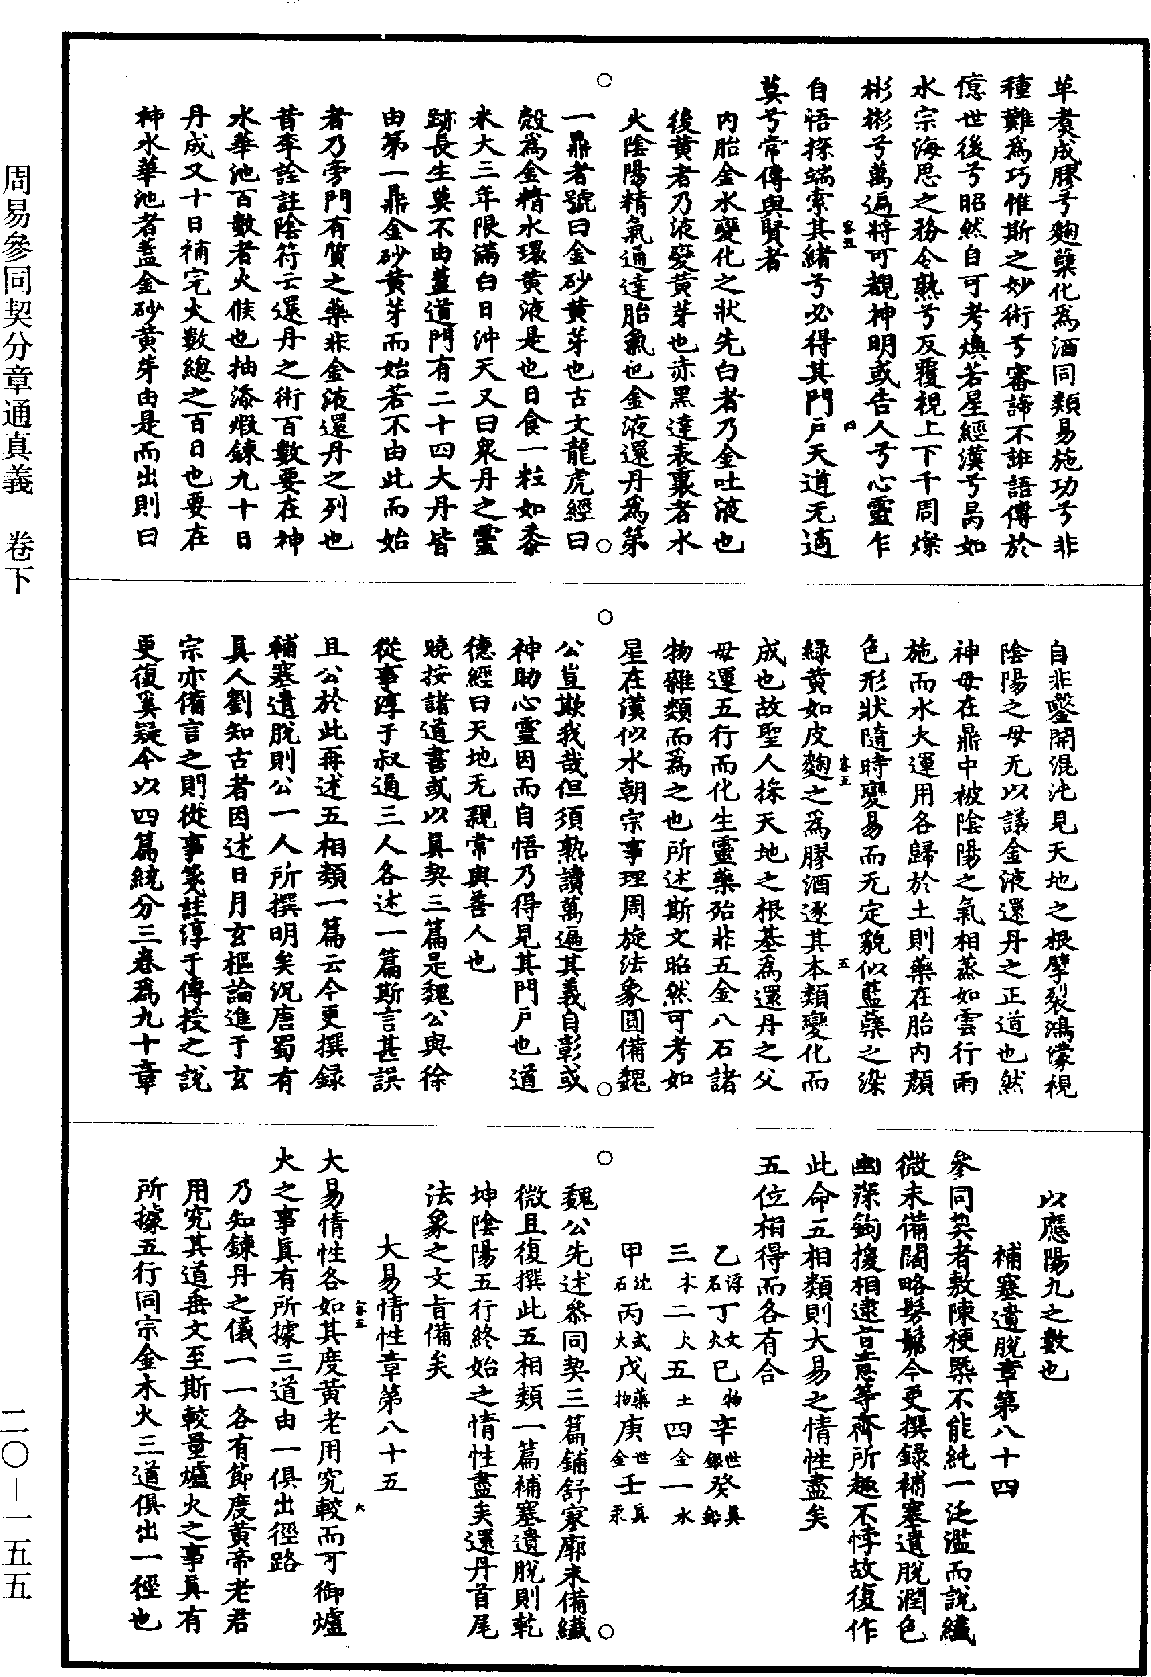 革煑成膠兮麴蘖化爲酒同類易施功兮非
種難爲巧惟斯之妙術兮審諦不誑語傳於
億世後兮昭然自可考煥若星經漢兮昺如
水宗海思之務令熟兮反覆視上下千周燦
彬彬兮萬遍將可覩神明或告人兮心靈乍
自悟探端索其緒兮必得其門戶天道无適
莫兮常傳與賢者
內胎金水變化之狀先白者乃金吐液也
後黄者乃液變黄芽也亦黑達表裏者水
火陰陽精氣通達胎氣也金液還丹爲第
一鼎者號曰金砂黄芽也古文龍虎經曰
殼爲金精水環黄液是也日食一粒如黍
米大三年限滿白日沖天又曰衆丹之靈
跡長生莫不由蓋道門有二十四大丹皆
由第一鼎金砂黄芽而始若不由此而始
者乃旁門有質之藥非金液還丹之列也
昔年詮註陰符云還丹之術百數要在神
水華池百數者火候也抽添煆鍊九十日
丹成又十日補完大數總之百日也要在
神水華池者蓋金砂黄芽由是而出則曰
自非鑿開混沌見天地之根擘裂鴻濛視
陰陽之母无以議金液還丹之正道也然
神母在鼎中被陰陽之氣相蒸如雲行雨
施而水火運用各歸於土則藥在胎內顏
色形狀隨時變易而无定貌似藍蘖之染
綠黄如皮麴之爲膠酒逐其本類變化而
成也故聖人採天地之根基爲還丹之父
母運五行而化生靈藥殆非五金八石諸
物雜類而爲之也所述斯文昭然可考如
星在漢似水朝宗事理周旋法象圓備魏
公豈欺我哉但須熟讀萬遍其義自彰或
神助心靈因而自悟乃得見其門戶也道
德經曰天地无親常與善人也
曉按諸道書或以眞契三篇是魏公與徐
從事淳于叔通三人各述一篇斯言甚誤
且公於此再述五相類一篇云今更撰録
補塞遺脫則公一人所撰明矣況唐蜀有
眞人劉知古者因述日月玄樞論進于玄
宗亦備言之則從事箋註淳于傳授之說
更復奚疑今以四篇統分三卷爲九十章
以應陽九之數也
補塞遺脫章第八十四
參同契者敷陳梗槩不能純一泛濫而說纖
微未備闊略髣髴今更撰録補塞遺脫潤色
幽深鉤援相逮旨意等齊所趣不悖故復作
此命五相類則大易之情性盡矣
五位相得而各有合
乙浮石丁文火己物辛世銀癸眞鉛
三木二火五土四金一水
甲沈石丙武火戊藥物庚世金壬眞汞
魏公先述參同契三篇鋪舒寥廓未備纖
微且復撰此五相類一篇補塞遺脫則乾
坤陰陽五行終始之情性盡矣還丹首尾
法象之文旨備矣
大易情性章第八十五
大易情性各如其度黄老用究較而可御爐
火之事眞有所據三道由一俱出徑路
乃知鍊丹之儀一一各有節度黄帝老君
用究其道垂文至斯較量爐火之事眞有
所據五行同宗金木火三道俱出一徑也
周易參同契分章通真義　卷下
二〇－一五五